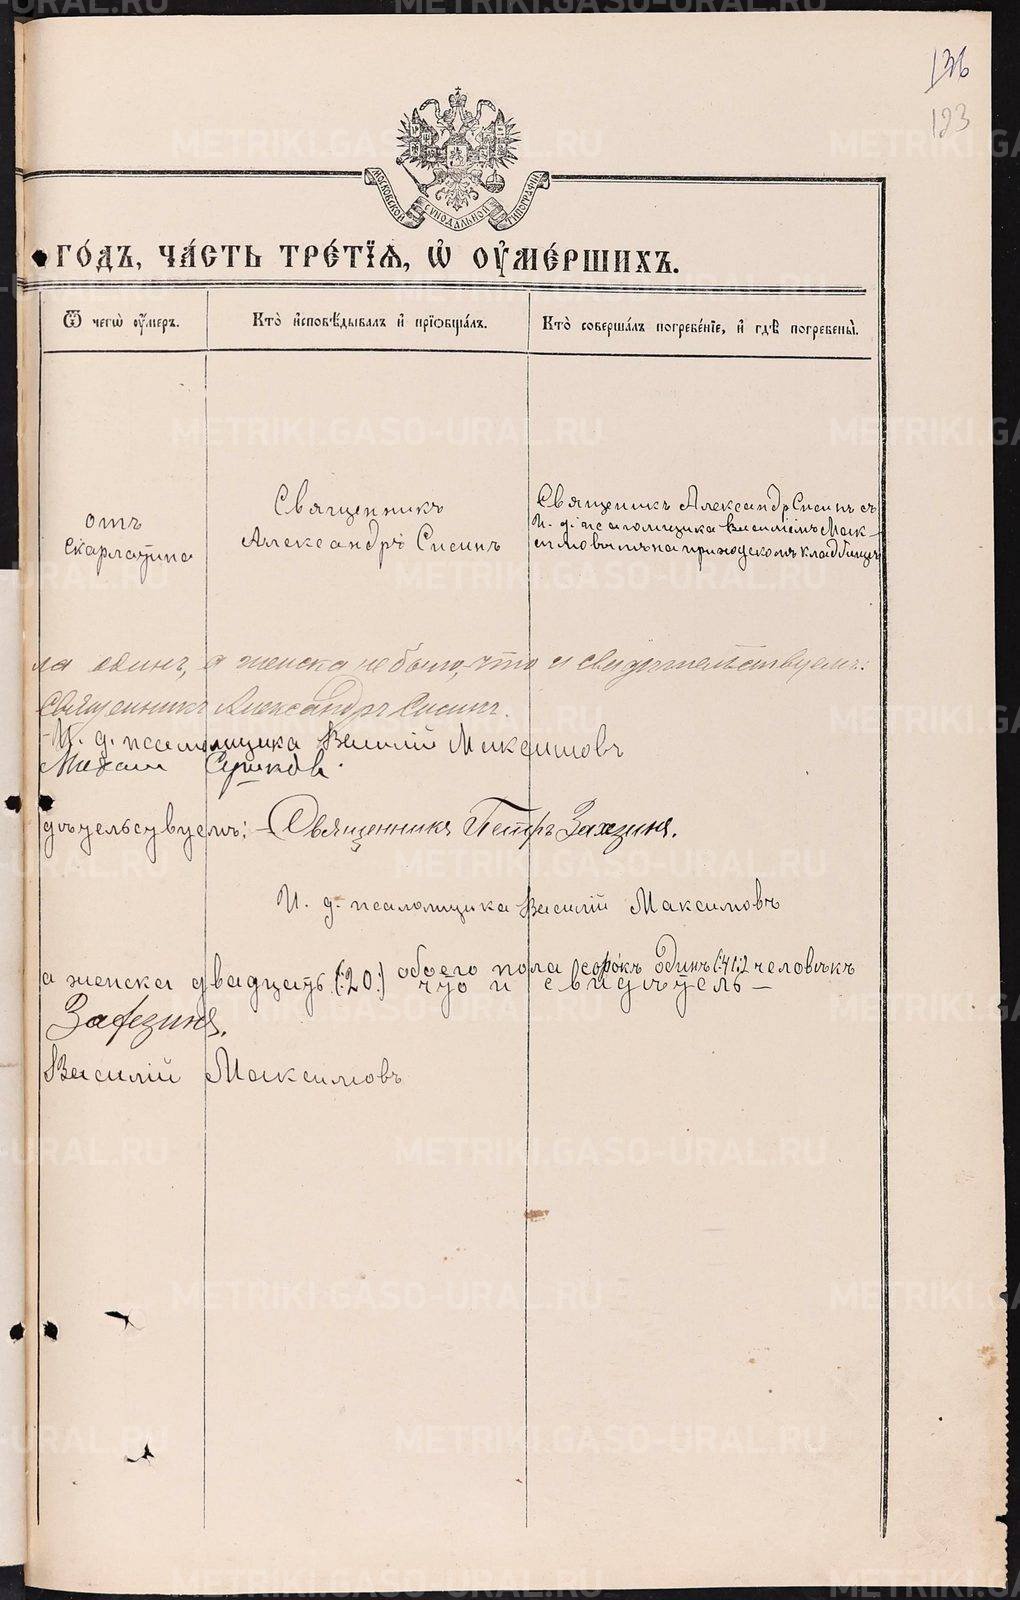 136
123
МОСКОВСКОЙ СѴНОДАЛЬНОЙ ТИПОГРАФІИ
ГОДЪ, ЧАСТЬ ТРЕТІѦ, Ѡ ОУМЕРШИХЪ.
Ѿ чегѡ оумеръ.
Кто исповѣдывалъ и пріобщалъ.
Кто совершалъ погребеніе, и гдѣ погребены.
отъ
скарлатина
Священникъ
Александръ Сисинъ
Священикъ Александръ Сисинъ съ
И. д. псаломщика Василіемъ Мак-
симовымъ на приходскомъ кладбищѣ
ла одинъ, а женска не было, что и свидѣтельствуемъ:
Священникъ Александръ Сисинъ.
И. д. псаломщика Василій Максимовъ
дѣтельствуемъ: Священникъ Петръ
И. д. псаломщика Василій Максимовъ
а женска двадцать (:20:) обоего пола сорокъ одинъ (:41:) человѣкъ
что и свидѣтель-
Василій Максимовъ
METRIKI.GASO-URAL.RU